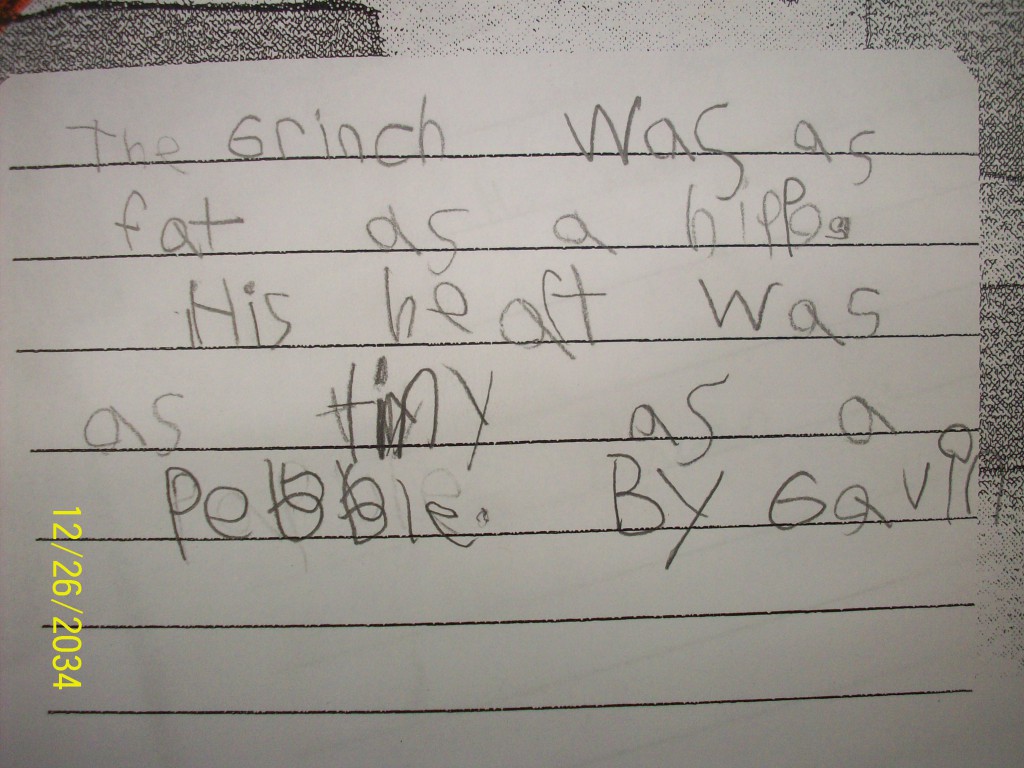 The Grinch Was as
fat as a hippo.
His heart was
as tiny as a
Pebble. By Gavin
12/26/2034